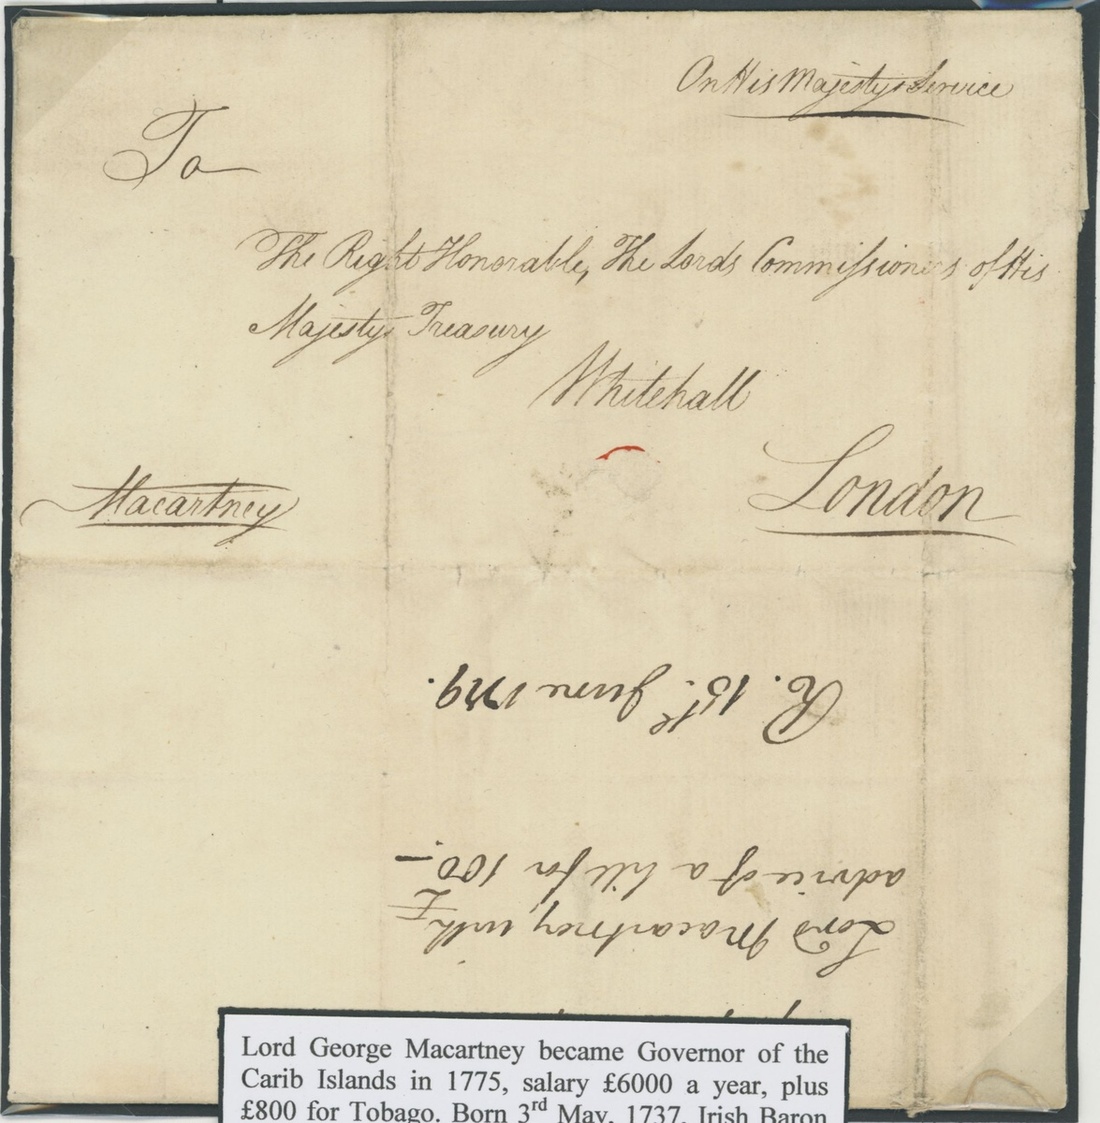 On His Majestys Service
To
The Right Honorable, The Lords Commissioners of His
Majestys Treasury
Whitehall
London
Macartney
Lord Macartney, with
advice of a bill for £100.—
R. 15th. June 1779.
Lord George Macartney became Governor of the
Carib Islands in 1775, salary £6000 a year, plus
£800 for Tobago. Born 3rd May, 1737, Irish Baron